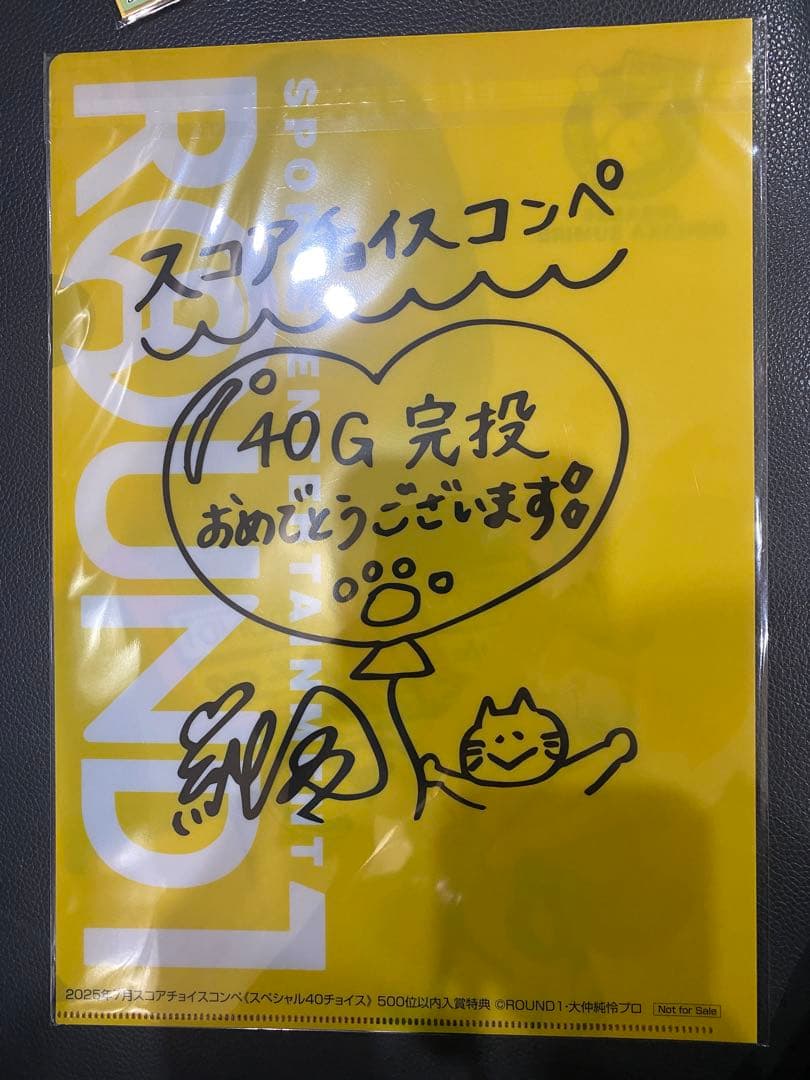 ROUND1
SPORTS ENTERTAINMENT
スコアチョイスコンペ
40G 完投
おめでとうございます!!
2025年7月スコアチョイスコンペ《スペシャル40チョイス》 500位以内入賞特典 ©ROUND1・大仲純怜プロ
Not for Sale